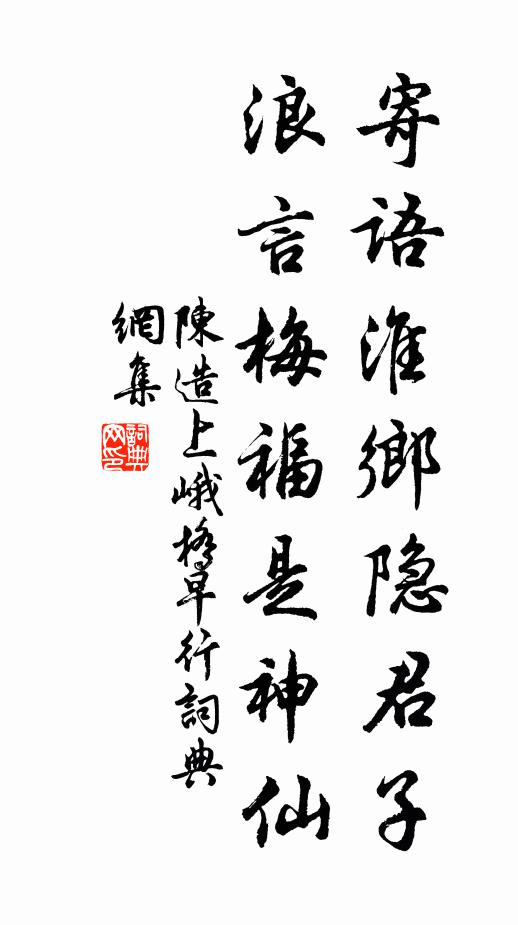 寄语淮鄉隐君子
浪言梅福是神仙
陳造上峨橋早行詞典
網集
詞典网印